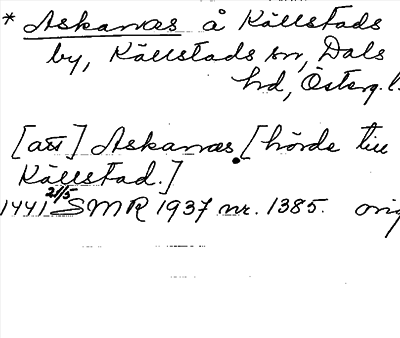 * Askanæs å Källstads
by, Källstads sn, Dals
hd, Österg. l.
[att] Askanæs. [hörde till
Källstad.]
1441 21/5 SMR 1937 nr. 1385. orig